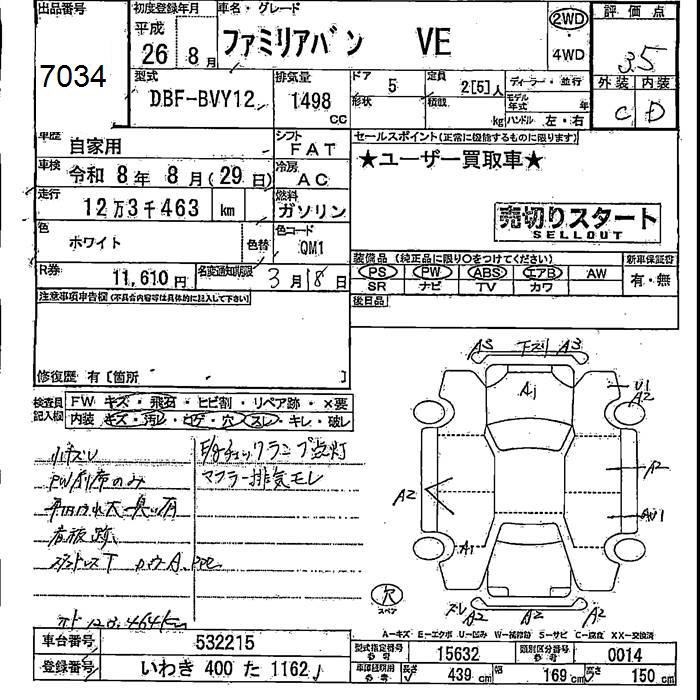 出品番号
7034
初度登録年月
平成
26 8月
車名・グレード
ファミリアバン VE
2WD
4WD
評価点
3.5
外装 内装
C D
型式
DBF-BVY12
排気量
1498 CC
ドア 5
形状
定員 2[5]人
積載 kg
ディーラー・並行
モデル年式 年
ハンドル 左・右
車歴
自家用
シフト
FAT
車検
令和 8年 8月(29日)
冷房
AC
走行
12万3千463 km
燃料
ガソリン
色
ホワイト
色替
色コード
QM1
R券
11,610円
名変通知期限
3月18日
セールスポイント(正常に機能するものに限ります)
★ユーザー買取車★
売切りスタート
SELLOUT
装備品(純正品に限り○をつけてください)
新車保証書
PS PW ABS エアB AW
SR ナビ TV カワ
有・無
後日品
注意事項申告欄(不具合内容等は具体的に記入して下さい)
修復歴 有[箇所 ]
検査員記入欄
FW キズ・飛石・ヒビ割・リペア跡・×要
内装 キズ・汚レ・コゲ・穴・スレ・キレ・破レ
小キズU
E/gチェックランプ点灯
マフラー排気モレ
A3 下ズリ A3
A1
U1
A2
A2
A2
AU1
A1
A2
A2
スペア
A—キズ E—エクボ U—凹み W—補修跡 S—サビ C—腐食 XX—交換済
車台番号 532215
登録番号 いわき 400 た 1162
型式指定番号 参考 15632
類別区分番号 参考 0014
長さ 439 cm
幅 169 cm
高さ 150 cm